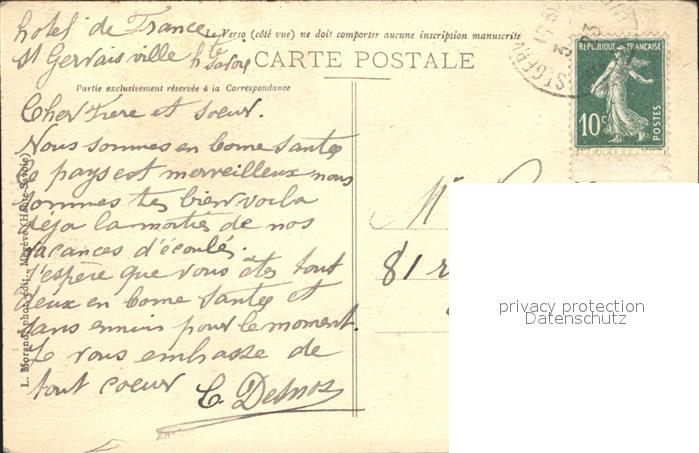 hotel de France
St Gervais ville hte
Savoie
Le Verso (côté vue) ne doit comporter aucune inscription manuscrite
CARTE POSTALE
Partie exclusivement réservée à la Correspondance
RÉPUBLIQUE FRANÇAISE
10c
POSTES
ST GERV
Cher Frere et soeur.
Nous sommes en bonne santé
le pays est merveilleux nous
sommes tes bien voila
déja la moitié de nos
vacances d'écoulés.
J'espère que vous êtes tout
deux en bonne santé et
sans ennui pour le moment.
Je vous embrasse de
tout coeur
C Desnoz
Mr
81 r
L. Morand, phot. édit., Megève (Haute-Savoie)
privacy protection
Datenschutz